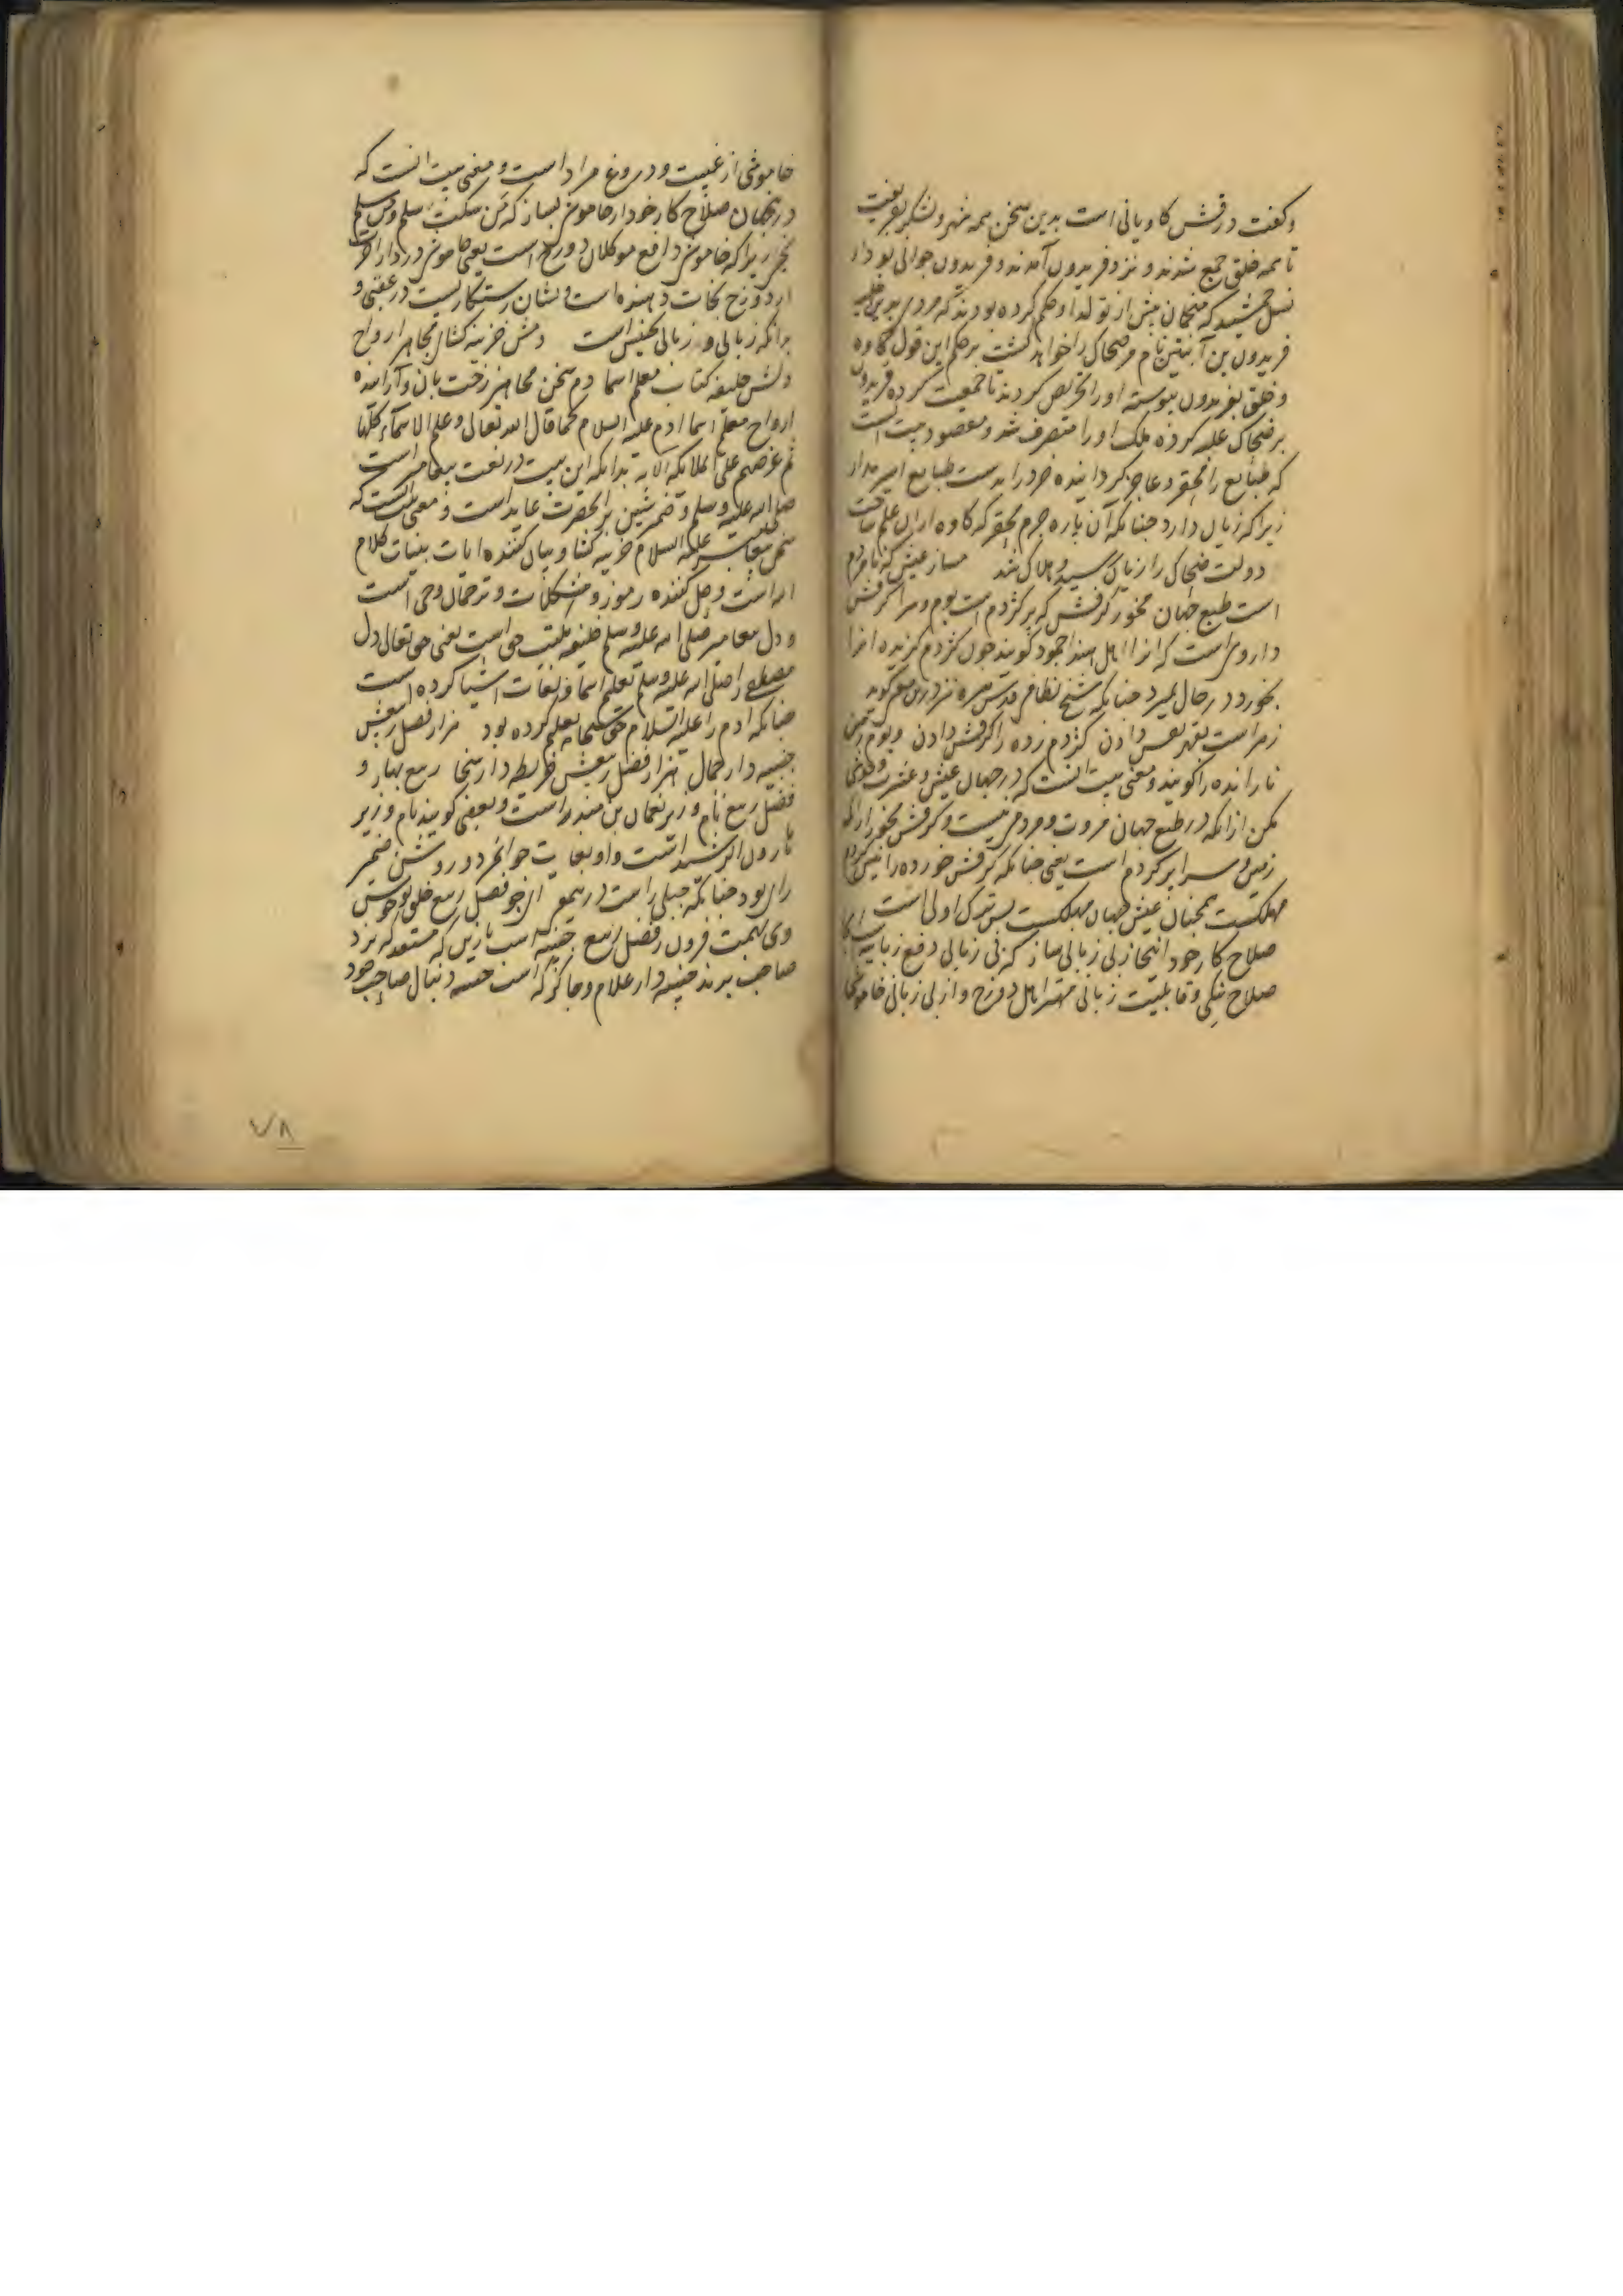 وکفت درفش کاویانی است بدین سخن همه شهر و لشکر بفریفت
تا همه خلق جمع شدند و نزد فریدون آمدند و فریدون جوانی بود از
نسل جمشید که منجمان پیش از تولد او حکم کرده بودند که مردی
فریدون بن آبتین نام مر ضحاک را خواهد کشت بر حکم این قول کاوه
و خلق بفریدون پیوسته او را تحریص کردند تا جمعیت کرده فریدون
بر ضحاک غلبه کرده ملک او را متصرف شد و مقصود بیت انست
که طبایع را محقر و عاجز کردانیده خود را بدست طبایع اسیر مدار
زیرا که زیان دارد چنانکه آن پاره چرم محقر که کاوه ازان علم ساخت
دولت ضحاک را زیان رسید و هلاک شد مساز عیش که نامردم
است طبع جهان مخور کرفش که پر کژدم است بوم و سرا کرفش
داروی است که انرا اهل هند اجمود کویند چون کژدم کزیده انرا
بخورد در حال بمیرد چنانکه شیخ نظامی قدس سره نیز درین معنی کوید
زهر است بقهر نفس دادن کژدم زده را کرفش دادن و بوم زمین
نا رانده را کویند و معنی بیت انست که در جهان عیش و عشرت
مکن ازانکه در طبع جهان مروت و مردمی نیست و کرفش مخور ازانکه
زمین و سرا پر کژدم است یعنی چنانکه کرفش خورده را نیش کژدم
مهلکست همچنان عیش جهان مهلکست پس ترک اولی است
صلاح کار خود اینجا ز بی زبانی ساز که بی زبانی دفع زبانیه است
صلاح نیکی و قابلیت زبانی مهتر اهل دوزخ و از بی زبانی خاموشی
خاموشی از غیبت و دروغ مراد است و معنی بیت انست که
درینجهان صلاح کار خود از خاموشی بساز که من سکت سلم و من سلم
نجی زیرا که خاموشی دافع موکلان دوزخ است یعنی خاموشی در دار
از دوزخ نجات دهنده است و نشان رستکاریست در عقبی و
بدانکه زبانی و زبانی تجنیس است دمش خزینه کشای مجاهز ارواح
دلش خلیفه کتاب معلم اسما دم سخن مجاهز رخت بان و آراینده
ارواح معلم اسما ادم علیه السلام کما قال الله تعالی و علم آدم الاسماء کلها
ثم عرضهم علی الملائکة الایة بدانکه این بیت در نعت پیغامبر است
صلی الله علیه و سلم و ضمیر شین بر انحضرت عاید است و معنی انست که
سخن پیغامبر علیه السلام خزینه کشا و بیان کننده ایات بینات کلام
الله است و حل کننده رموز و مشکلات و ترجمان وحی است
و دل پیغامبر صلی الله علیه و سلم خلیفه مکتب حق است یعنی حق تعالی دل
مصطفی را صلی الله علیه و سلم تعلیم اسما و لغات اشیا کرده است
چنانکه ادم را علیه السلام حق سبحانه تعلیم کرده بود هزار فصل ربیعش
جنیبه دار جمال هزار فضل ربیعش خریطه دار سخا ربیع بهار و
فضل ربیع نام وزیر نعمان بن منذر است و بعضی کویند نام وزیر
هارون الرشید است و او بغایت جوانمرد و روشن ضمیر
رای بود چنانکه جبلی راست درین معنی ای چو فصل ربیع خلق تو خوش
وی بهمت فزون ز فضل ربیع جنیبه اسپ با زین که مستعد که نزد
صاحب برند جنیبه دار غلام و چاکر که اسپ جنیبه دنبال صاحب خود
۷۸